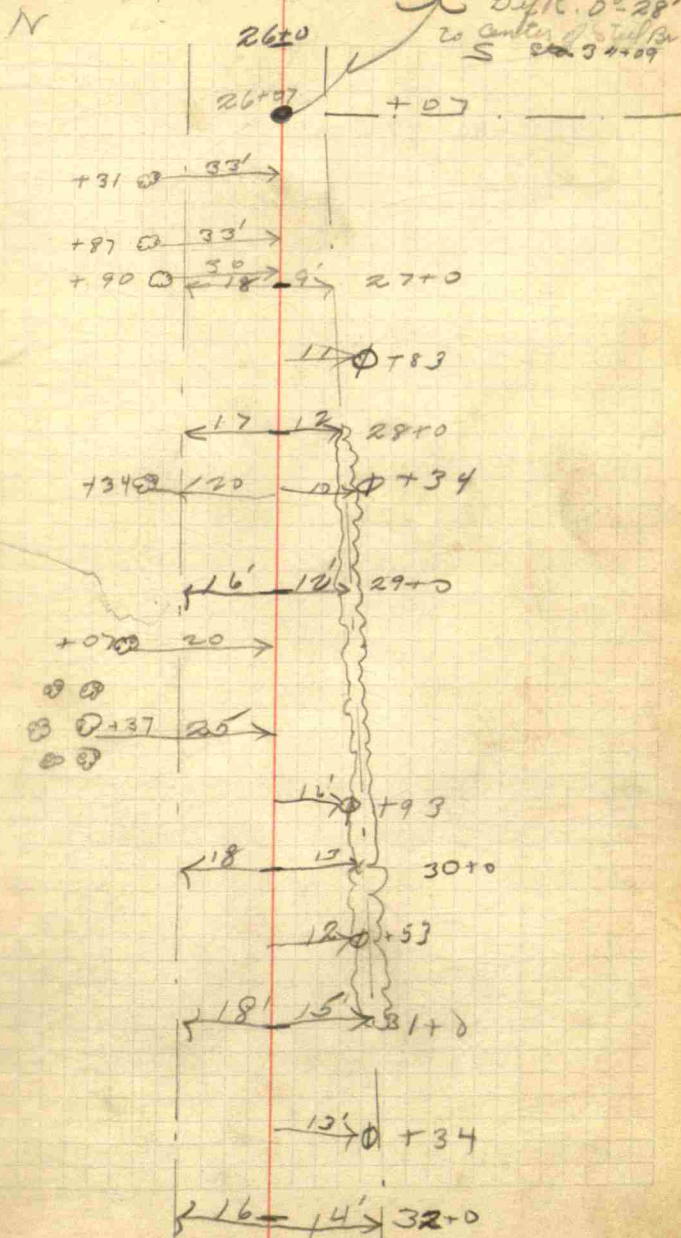 N
Def R. 0°-28'
26+0
to Center of Steel Br
S Sta 34+09
26+07
+07
+31 33'
+87 33'
+90 30
18 9' 27+0
11 +83
17 12 28+0
+34 20 10 +34
16' 12' 29+0
+07 20
+37 25
11' +93
18 13 30+0
12 +53
18' 15' 31+0
13' +34
16 14' 32+0